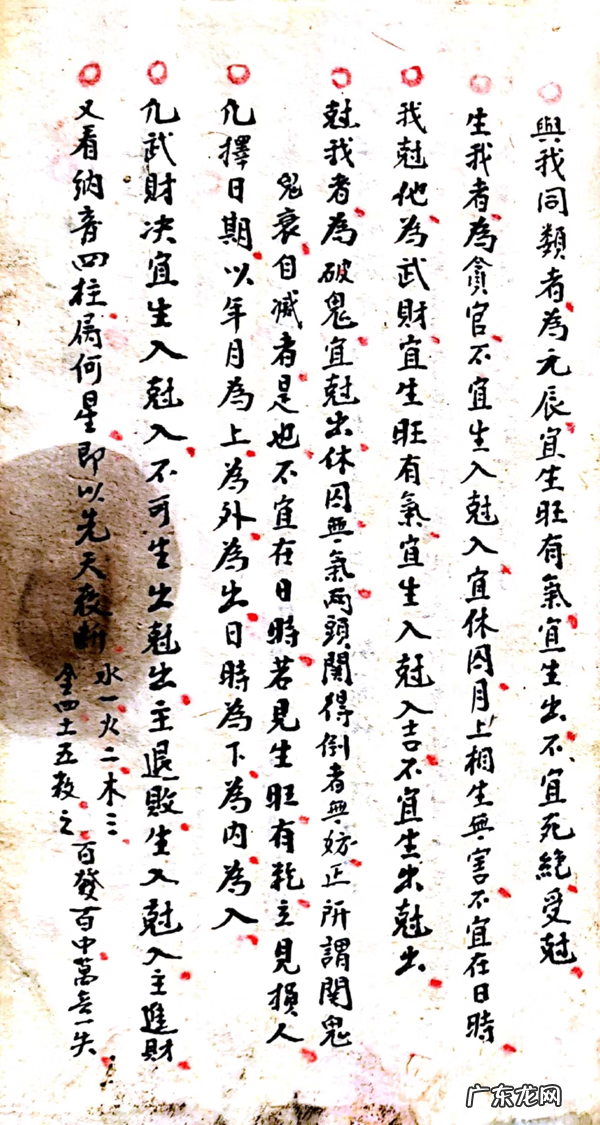 與我同類者為元辰宜生旺有氣宜生出不宜死絕受尅
生我者為貪官不宜生入尅入宜休囚月上相生無害不宜在日時
我尅他為武財宜生旺有氣宜生入尅入吉不宜生出尅出
尅我者為破鬼宜尅出休囚無氣兩頭関得倒者無妨正所謂関鬼
鬼衰自滅者是也不宜在日時若見生旺有乾立見損人
凢擇日期以年月為上為外為出日時為下為內為入
凢武財决宜生入尅入不可生出尅出主退敗生入尅入主進財
又看納音四柱属何星即以先天後断水一火二木三
金四土五数之百發百中萬無一失
广东龙网